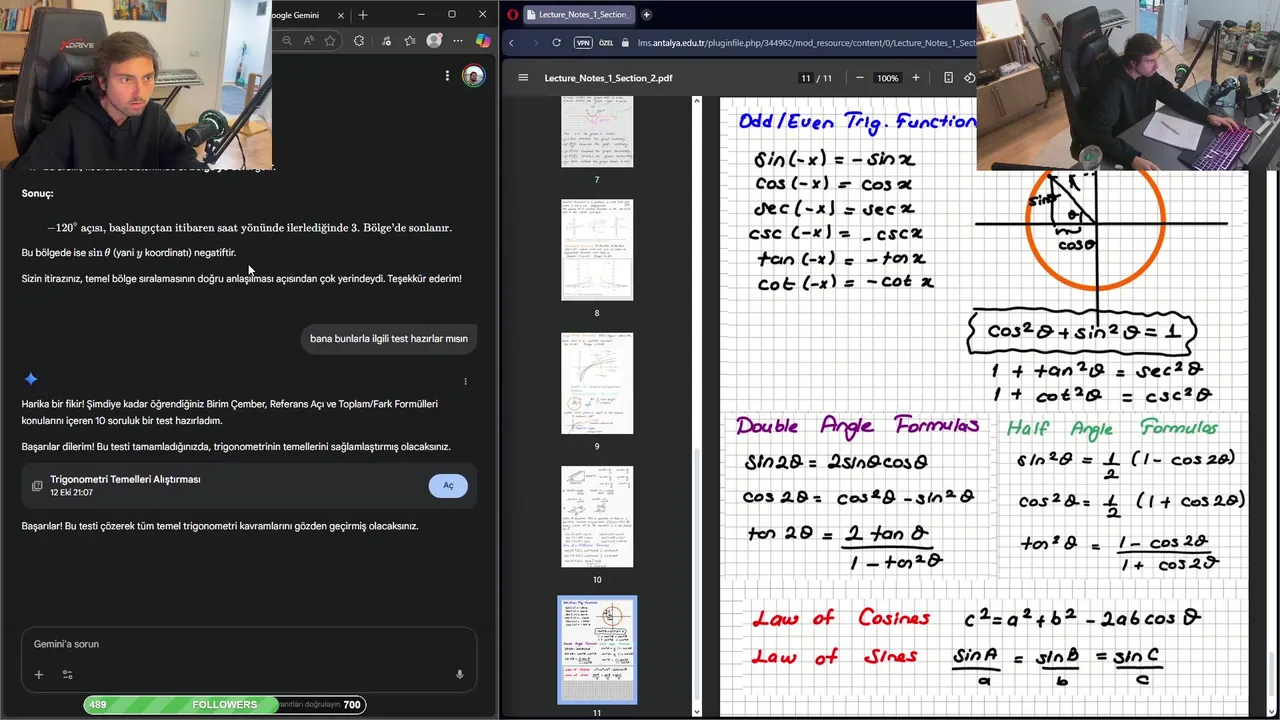 oogle Gemini
Sonuç:
−120° açısı, başlangıçtan itibaren saat yönünde ilerlediğinde 3. Bölge'de sonlanır.
Bu bölgede ise sin θ (yani y koordinatı) negatiftir.
Sizin itirazınız, temel bölge sıralamasının doğru anlaşılması açısından çok yerindeydi. Teşekkür ederim!
bana bunlarla ilgili test hazırlar mısın
Harika bir fikir! Şimdiye kadar öğrendiğiniz Birim Çember, Referans Açı ve Toplam/Fark Formülleri
konularını içeren 10 soruluk bir test hazırladım.
Başarılar dilerim! Bu testi tamamladığınızda, trigonometrinin temellerini sağlamlaştırmış olacaksınız.
Trigonometri Temelleri Alıştırması
12 Eki 21:07
Aç
Başarılar! Bu testi çözerek tüm temel trigonometri kavramlarını gözden geçirmiş olacaksınız.
Gemini'a sorun
489 FOLLOWERS 700
yanıtları doğrulayın.
Lecture_Notes_1_Section_
VPN ÖZEL lms.antalya.edu.tr/pluginfile.php/344962/mod_resource/content/0/Lecture_Notes_1_Sect
Lecture_Notes_1_Section_2.pdf
11 / 11
100%
7
8
9
10
11
Odd/Even Trig. Function
sin(-x) = -sinx
cos(-x) = cosx
sec(-x) = secx
csc(-x) = -cscx
tan(-x) = -tanx
cot(-x) = -cotx
sinθ
θ
cosθ
cos²θ + sin²θ = 1
1 + tan²θ = sec²θ
1 + cot²θ = csc²θ
Double Angle Formulas
sin2θ = 2sinθcosθ
cos2θ = cos²θ - sin²θ
tan 2θ = 2 tanθ / 1 - tan²θ
Half Angle Formulas
sin²θ = 1/2 (1 - cos2θ)
cos²θ = 1/2 (1 + cos2θ)
tan²θ = 1 - cos2θ / 1 + cos2θ
Law of Cosines c² = a² + b² - 2ab cosθ
Law of Sines sinA/a = sinB/b = sinC/c